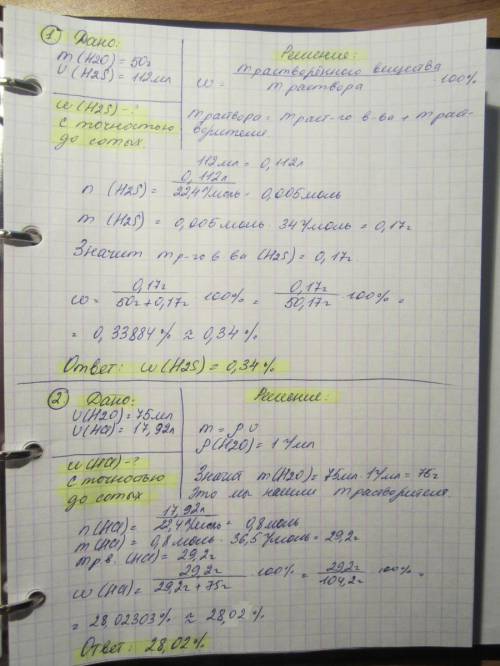 ① Дано:
m(H2O) = 50г
U(H2S) = 112мл
Решение:
ω = m растворённого вещества / m раствора · 100%
ω(H2S) - ?
с точностью
до сотых.
m раствора = m раст-го в-ва + m раст-
ворителя.
112мл = 0,112л
n (H2S) = 0,112л / 22,4 л/моль = 0,005моль
m (H2S) = 0,005моль · 34 г/моль = 0,17г
Значит m р-го в ва (H2S) = 0,17г.
ω = 0,17г / 50г+0,17г · 100% = 0,17г / 50,17г · 100% =
= 0,33884% ≈ 0,34%
Ответ: ω(H2S) = 0,34%
② Дано:
U(H2O) = 75мл
U(HCl) = 17,92л
Решение:
m = ρ U
ρ(H2O) = 1 г/мл
ω(HCl) - ?
с точностью
до сотых
Значит m(H2O) = 75мл · 1г/мл = 75г
Это мы нашли m растворителя.
n(HCl) = 17,92л / 22,4 л/моль = 0,8моль
m(HCl) = 0,8моль · 36,5 г/моль = 29,2г
m р.в. (HCl) = 29,2г
ω(HCl) = 29,2г / 29,2г + 75г · 100% = 29,2г / 104,2г · 100% =
= 28,02303% ≈ 28,02 %
Ответ: 28,02%